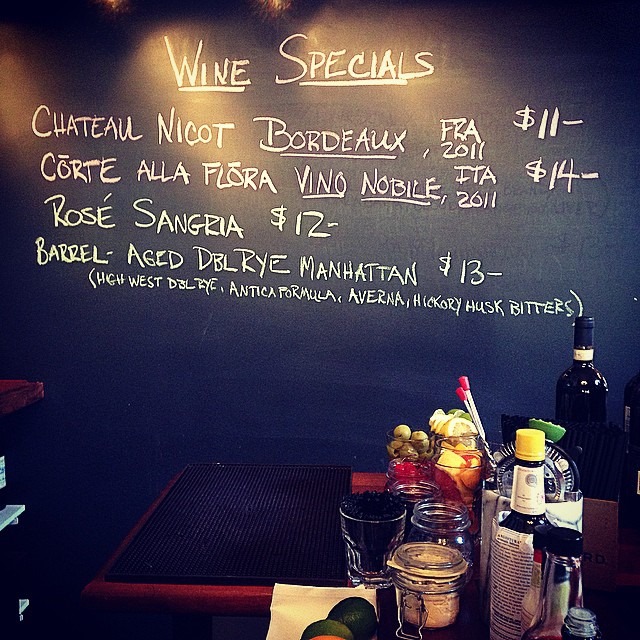 WINE SPECIALS
CHATEAU NICOT BORDEAUX, FRA 2011 $11-
CŌRTE ALLA FLŌRA VINO NOBILE, ITA 2011 $14-
ROSÉ SANGRIA $12-
BARREL-AGED DBL RYE MANHATTAN $13-
(HIGH WEST DBL RYE, ANTICA FORMULA, AVERNA, HICKORY HUSK BITTERS)